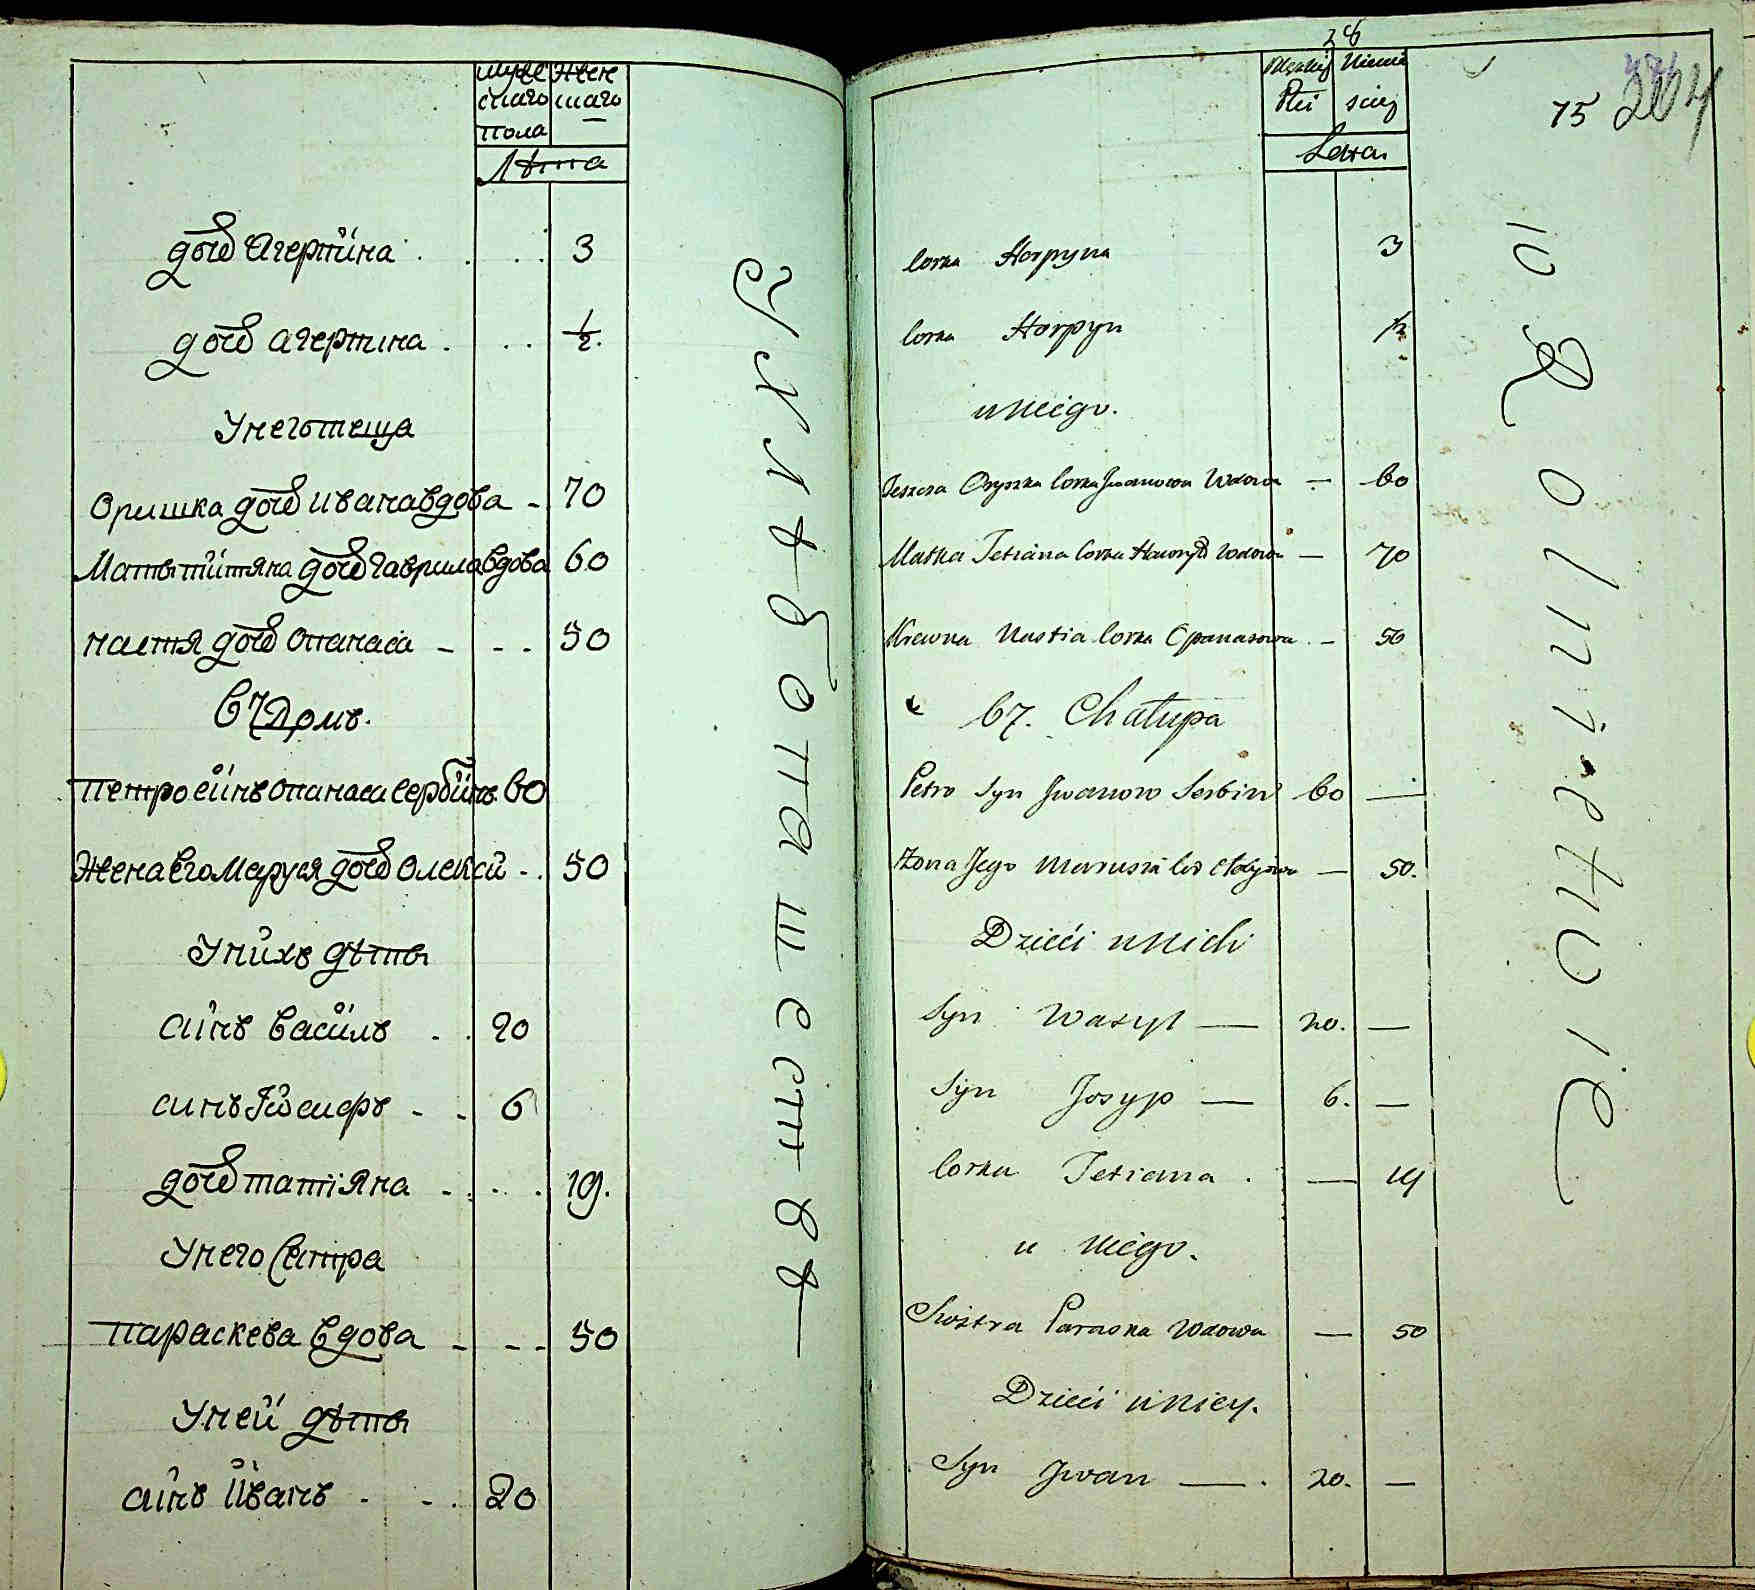 муже женс
скаго каго
пола
Лѣта
дочь Агерпина 3
дочь агерпина 1/2.
Унего теща
Оришка дочь ивана вдова 70
Мать титяна дочь гаврила вдова 60
настя дочь опанаса 50
67 Домъ.
петро синъ опанаса сербинъ. 60
жена его Маруся дочь Олексѣй 50
Унихъ дѣти
синъ василь 20
синъ Іосифъ 6
дочь татіяна 19.
Унего Сестра
параскева вдова 50
Уней дѣти
синъ иванъ 20
28
Męzkiy Niewie
Płci sciey
Lata.
75
corka Horpyna 3
corka Horpyn 1/2
u niego.
Teszcza Oryszka corka Jwanowa Wdowa — 60
Matka Tetiana corka Hawrył wdowa — 70
Krewna Nastia corka Opanasowa — 50
67. Chałupa
Petro Syn Jwanow Serbin 60 —
Żona Jego Marusia — 50.
Dzieci u nich
Syn Wasyl — 20. —
Syn Josyp — 6. —
Corka Tetiana — 19
u niego.
Siostra Paraska Wdowa — 50
Dzieci u niey.
Syn Jwan — 20. —